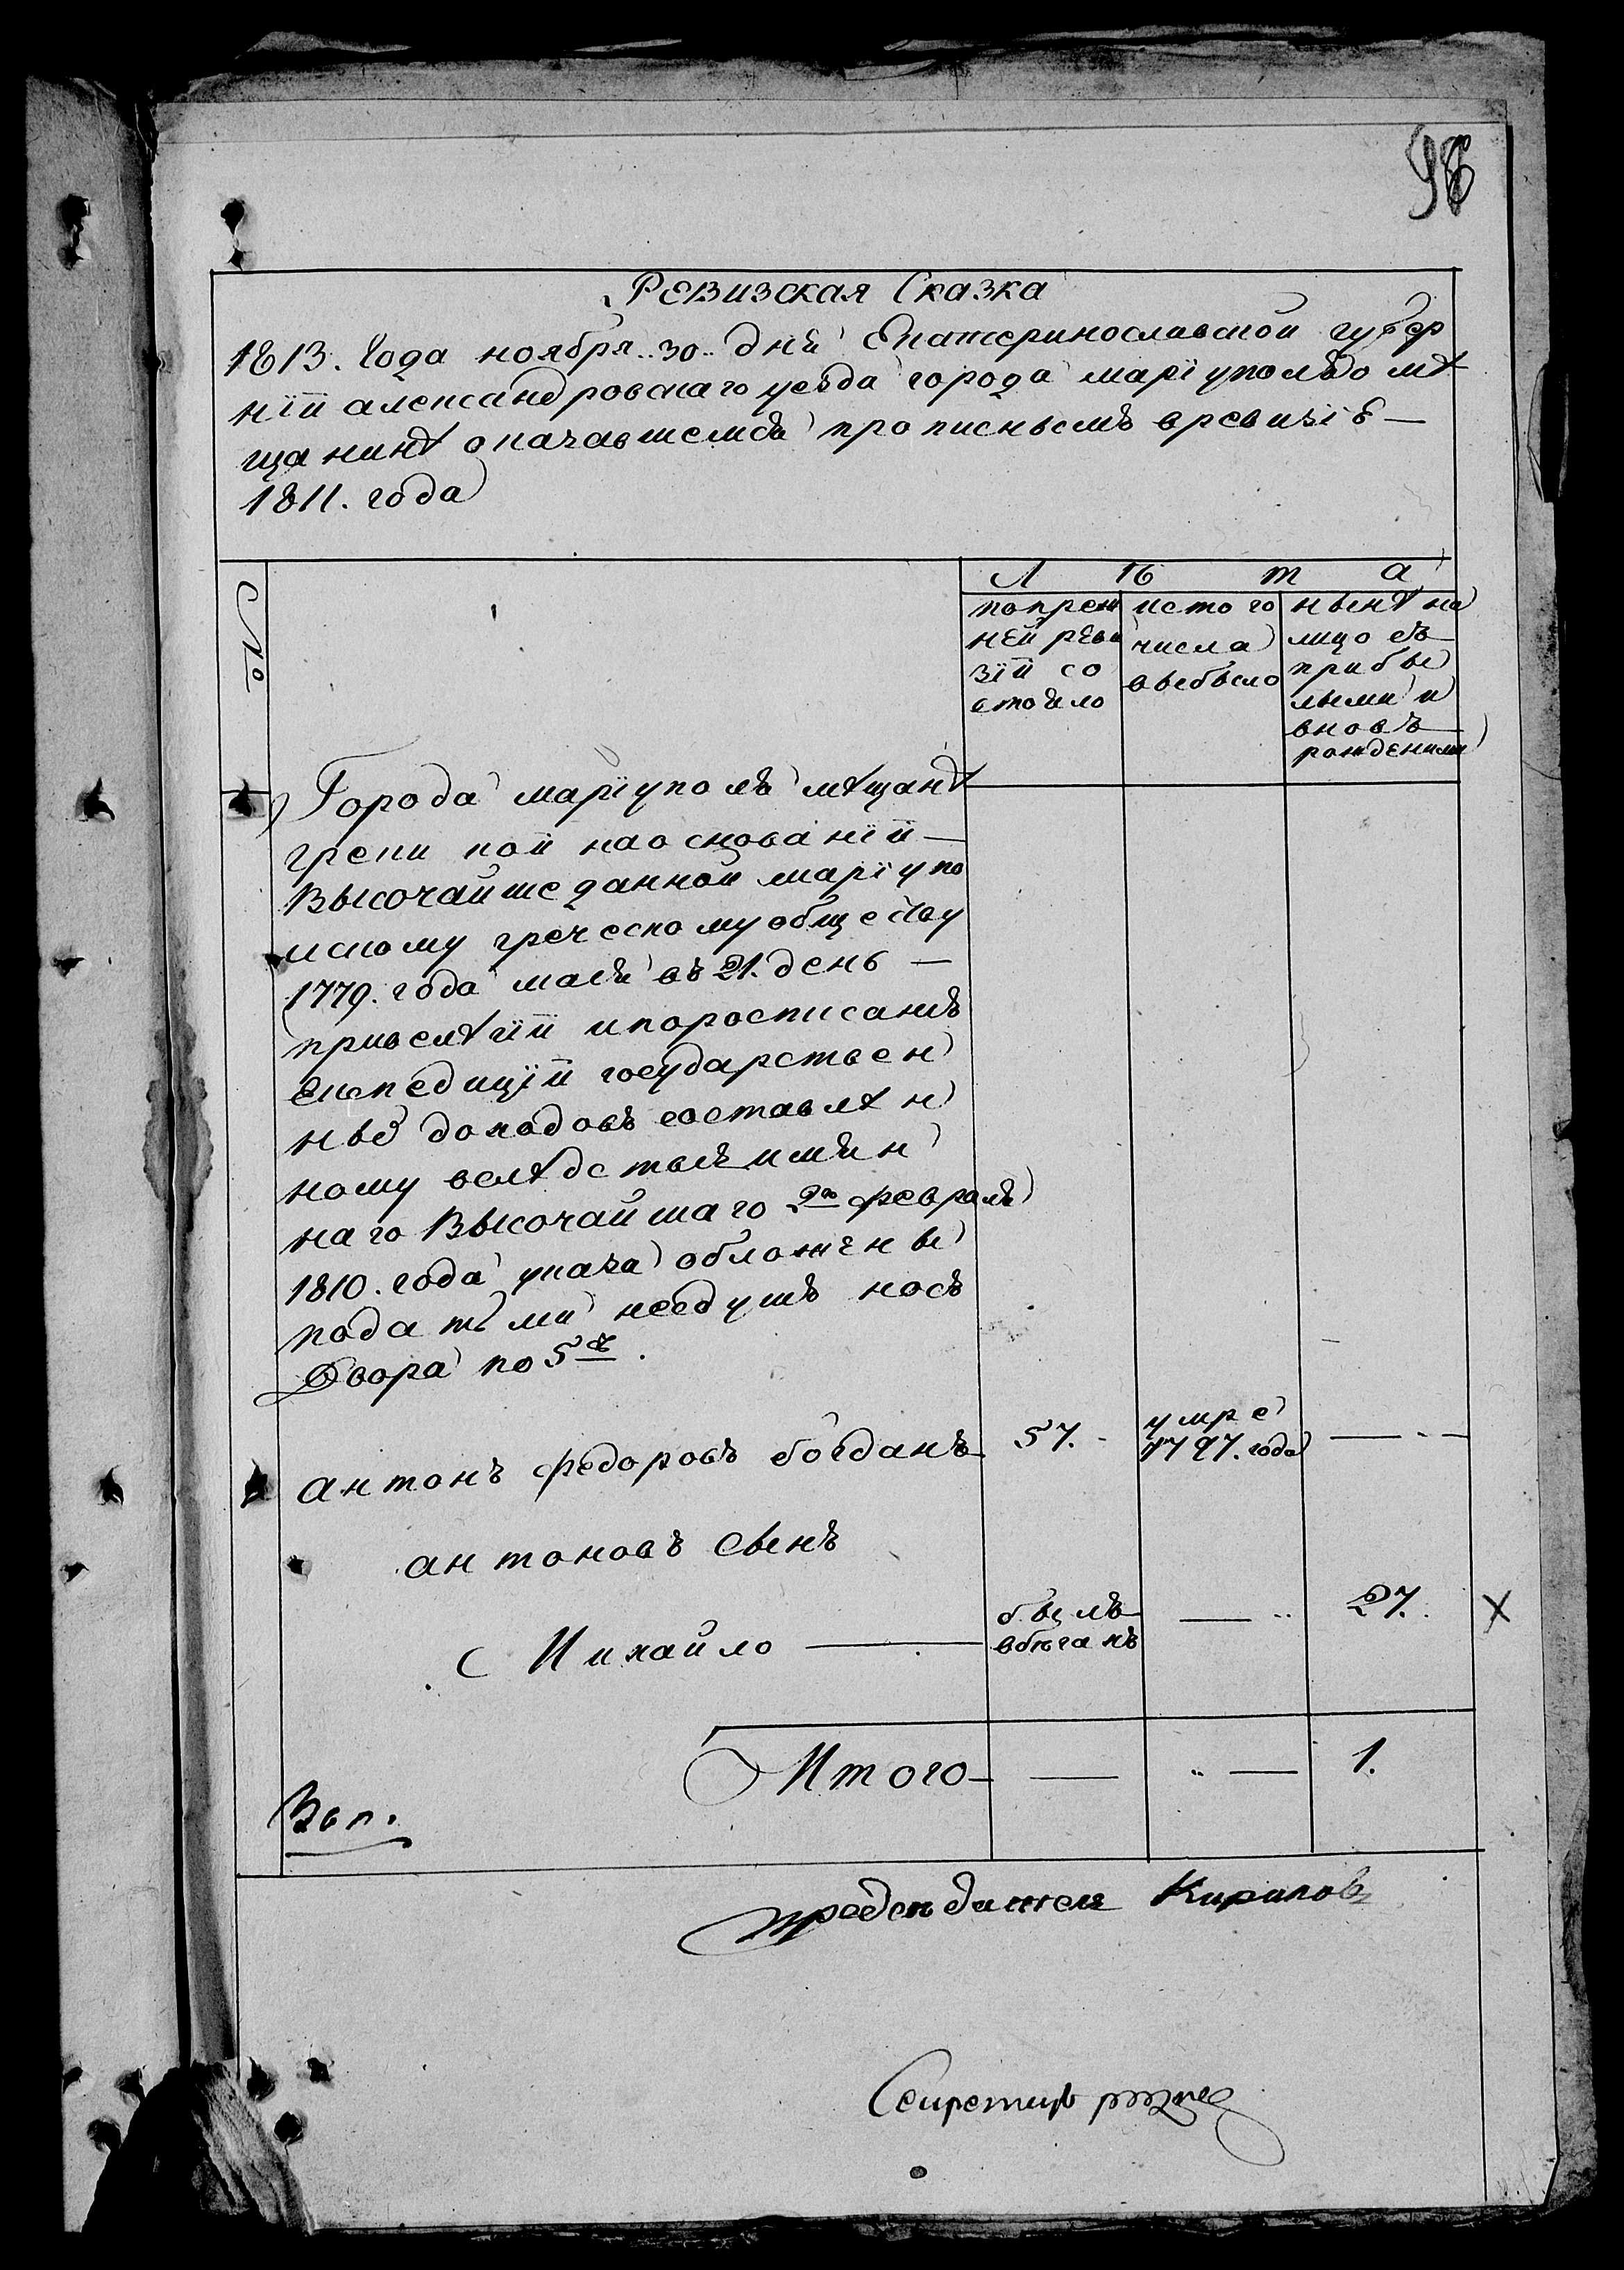 98
Ревизская Сказка
1813. Года ноября..30.. дня Екатеринославской губер
нїи александровскаго уезда города марїуполя о мѣ
щанинѣ оказавшемся прописнымъ вревизїе —
1811. года
№
Л ѣ т а
попреж
ней реви
зїи со
стояло
ис того
числа
выбыло
нынѣ на
лицо съ
прибы
лыми и
вновь
рожденими
Города марїуполя мѣщанѣ
греки кои на основанїи —
Высочайше данной марїупо
льскому греческому обществу
1779. года маия въ 21. день —
привелѣгїи и поросписанїю
Експедицїи государствен
ныхъ доходовъ составлѣн
ному
наго Высочайшаго 2го февраля
1810. года указа обложены
податьми не сдушъ но съ
Двора по 5
антонъ федоровъ богданъ 57. - умре 1797. года — - —
антоновъ сынъ
Михайло — былъ вбегахъ — .. 27. X
Итого — — .. — 1.
председатель Кирилов
Секретарь